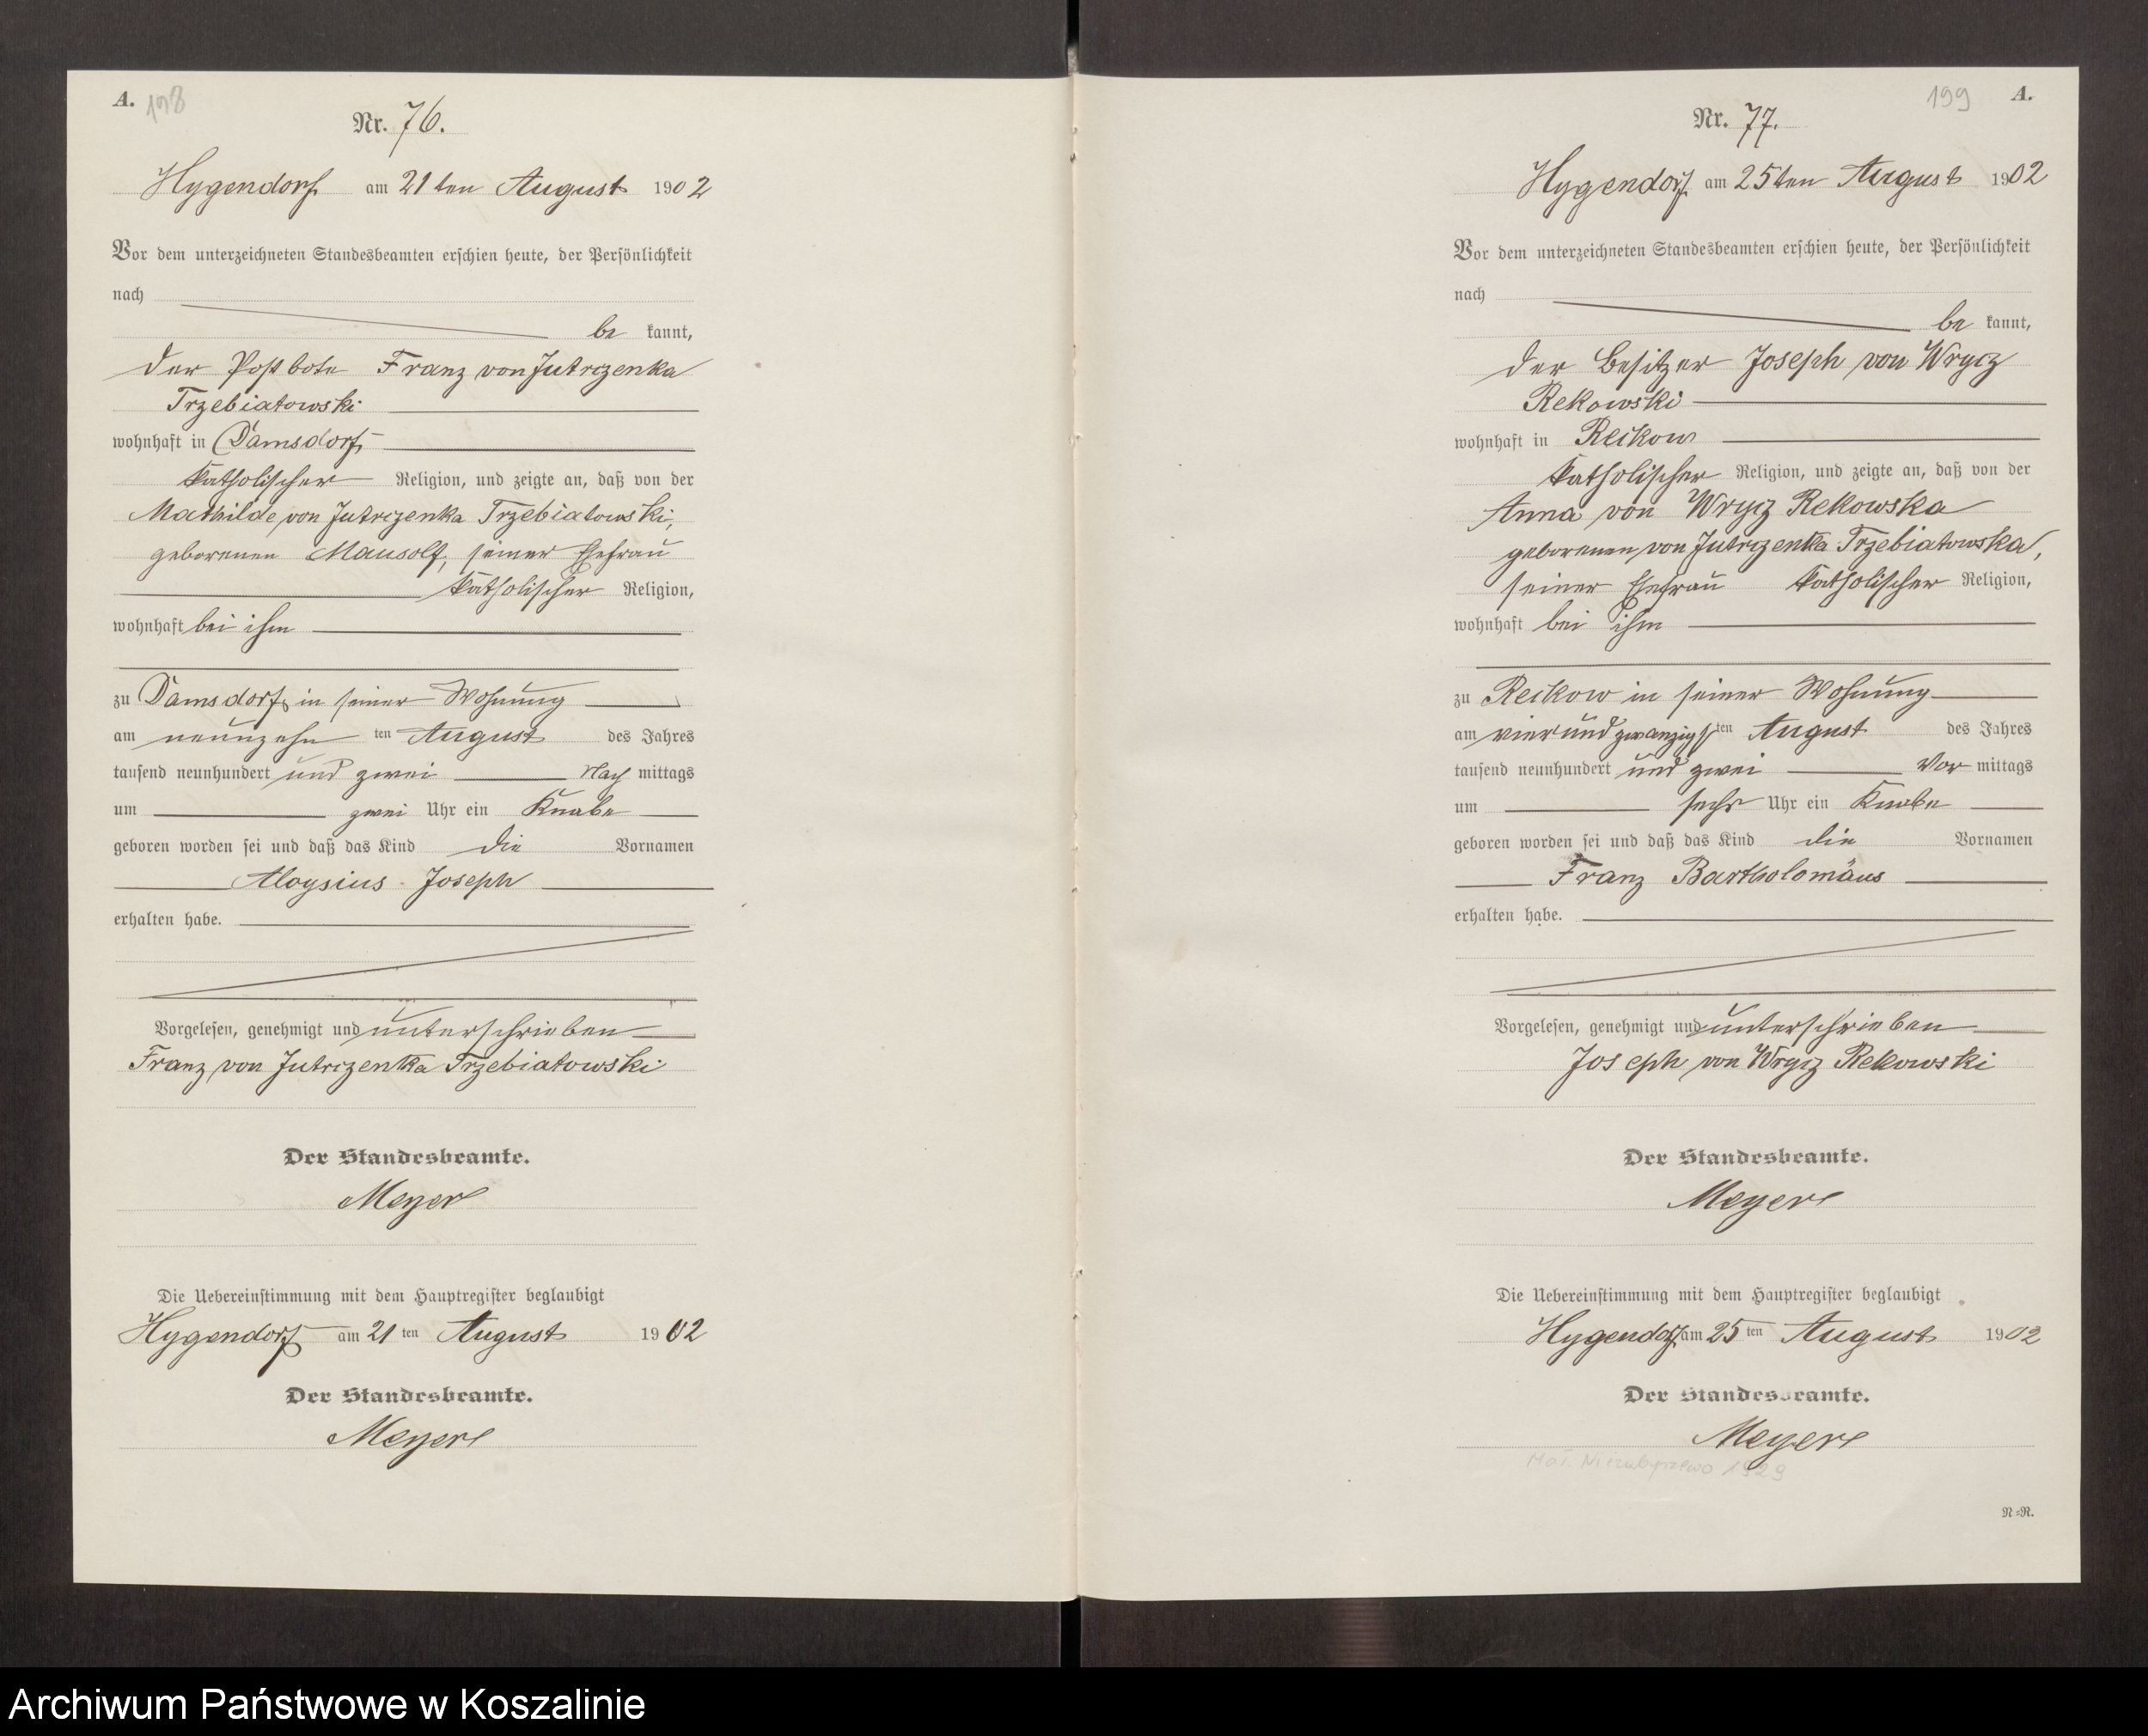 A. 198
Nr. 76.
Hygendorf am 21ten August 1902
Vor dem unterzeichneten Standesbeamten erschien heute, der Persönlichkeit
nach
be kannt,
der Postbote Franz von Jutrzenka
Trzebiatowski
wohnhaft in Damsdorf,
katholischer Religion, und zeigte an, daß von der
Mathilde von Jutrzenka Trzebiatowski,
geborenen Mausolf, seiner Ehefrau
katholischer Religion,
wohnhaft bei ihm
zu Damsdorf, in seiner Wohnung
am neunzehn ten August des Jahres
tausend neunhundert und zwei Nach mittags
um zwei Uhr ein Knabe
geboren worden sei und daß das Kind die Vornamen
Aloysius Joseph
erhalten habe.
Vorgelesen, genehmigt und unterschrieben
Franz von Jutrzenka Trzebiatowski
Der Standesbeamte.
Meyer
Die Uebereinstimmung mit dem Hauptregister beglaubigt
Hygendorf am 21 ten August 1902
Der Standesbeamte.
Meyer
199 A.
Nr. 77.
Hygendorf am 25ten August 1902
Vor dem unterzeichneten Standesbeamten erschien heute, der Persönlichkeit
nach
be kannt,
der Besitzer Joseph von Wrycz
Rekowski
wohnhaft in Reckow
katholischer Religion, und zeigte an, daß von der
Anna von Wrycz Rekowska
geborenen von Jutrzenka Trzebiatowska,
seiner Ehefrau katholischer Religion,
wohnhaft bei ihm
zu Reckow in seiner Wohnung
am vierundzwanzigsten August des Jahres
tausend neunhundert und zwei Vor mittags
um sechs Uhr ein Knabe
geboren worden sei und daß das Kind die Vornamen
Franz Bartholomäus
erhalten habe.
Vorgelesen, genehmigt und unterschrieben
Joseph von Wrycz Rekowski
Der Standesbeamte.
Meyer
Die Uebereinstimmung mit dem Hauptregister beglaubigt
Hygendorf am 25 ten August 1902
Der Standesbeamte.
Meyer
1929
R=R.
Archiwum Państwowe w Koszalinie